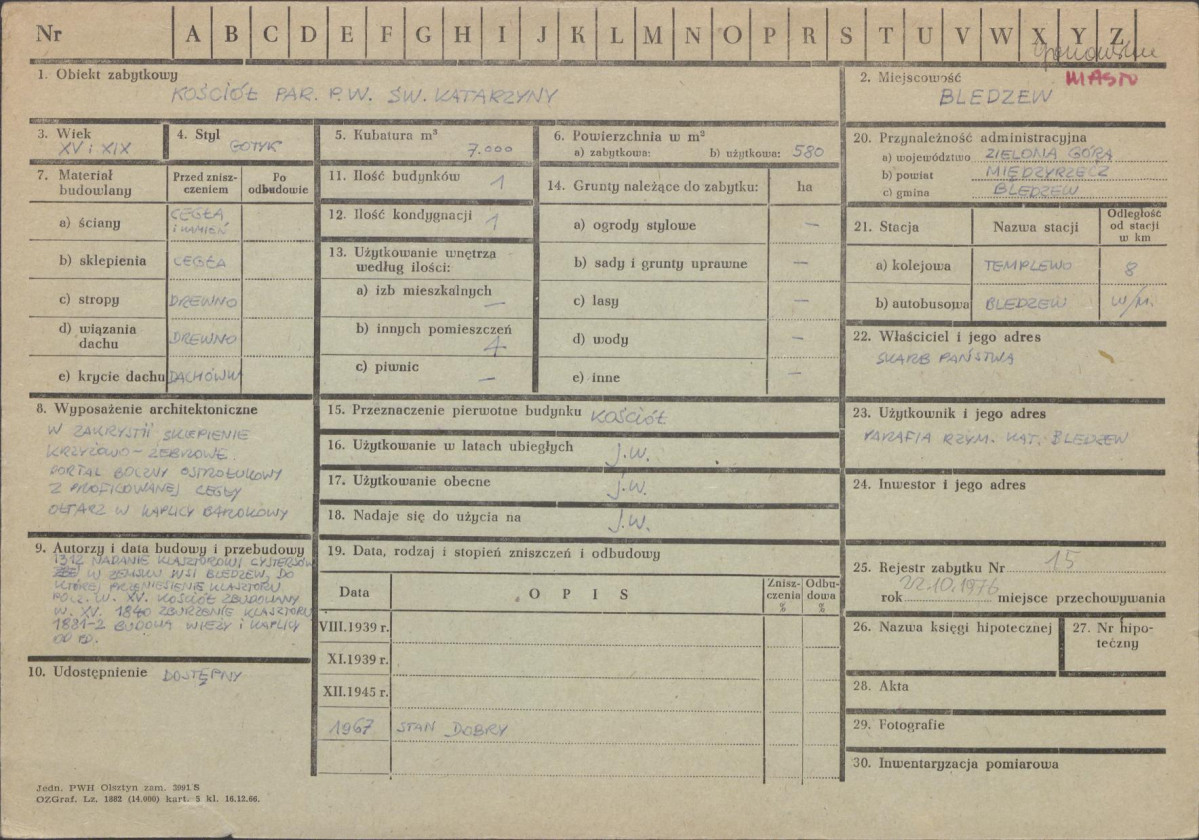 Nr A B C D E F G H I J K L M N O P R S T U V W X Y Z
1. Obiekt zabytkowy
KOŚCIÓŁ PAR. P.W. ŚW. KATARZYNY
2. Miejscowość MIASTO
BLEDZEW
3. Wiek
XV i XIX
4. Styl
GOTYK
5. Kubatura m³
7.000
6. Powierzchnia w m²
a) zabytkowa: b) użytkowa: 580
20. Przynależność administracyjna
a) województwo ZIELONA GÓRA
b) powiat MIĘDZYRZECZ
c) gmina BLEDZEW
7. Materiał budowlany
Przed zniszczeniem
Po odbudowie
a) ściany CEGŁA, i KAMIEŃ
b) sklepienia CEGŁA
c) stropy DREWNO
d) wiązania dachu DREWNO
e) krycie dachu DACHÓWK
11. Ilość budynków 1
12. Ilość kondygnacji 1
13. Użytkowanie wnętrza
według ilości:
a) izb mieszkalnych —
b) innych pomieszczeń 4
c) piwnic —
14. Grunty należące do zabytku: ha
a) ogrody stylowe —
b) sady i grunty uprawne —
c) lasy —
d) wody —
e) inne —
21. Stacja Nazwa stacji Odległość od stacji w km
a) kolejowa TEMPLEWO 8
b) autobusowa BLEDZEW w/m.
22. Właściciel i jego adres
SKARB PAŃSTWA
8. Wyposażenie architektoniczne
W ZAKRYSTII SKLEPIENIE
KRZYŻOWO-ŻEBROWE.
PORTAL BOCZNY OSTROŁUKOWY
Z PROFILOWANEJ CEGŁY
OŁTARZ W KAPLICY BAROKOWY
15. Przeznaczenie pierwotne budynku KOŚCIÓŁ
16. Użytkowanie w latach ubiegłych J.W.
17. Użytkowanie obecne J.W.
18. Nadaje się do użycia na J.W.
23. Użytkownik i jego adres
PARAFIA RZYM. KAT. BLEDZEW
24. Inwestor i jego adres
9. Autorzy i data budowy i przebudowy
1312 NADANIE KLASZTOROWI CYSTERSÓW
W ZEMSKU WSI BLEDZEW, DO
KTÓREJ PRZENIESIENIE KLASZTORU
POŁ. W. XV. KOŚCIÓŁ ZBUDOWANY
W. XV. 1840 ZBURZENIE KLASZTORU
1881-2 BUDOWA WIEŻY I KAPLICY
OD PD.
10. Udostępnienie DOSTĘPNY
19. Data, rodzaj i stopień zniszczeń i odbudowy
Data O P I S Zniszczenia % Odbudowa %
VIII.1939 r.
XI.1939 r.
XII.1945 r.
1967 STAN DOBRY
25. Rejestr zabytku Nr 15
rok 22.10.1976 miejsce przechowywania
26. Nazwa księgi hipotecznej
27. Nr hipoteczny
28. Akta
29. Fotografie
30. Inwentaryzacja pomiarowa
Jedn. PWH Olsztyn zam. 3991 S
OZGraf. Lz. 1882 (14.000) kart. 5 kl. 16.12.66.